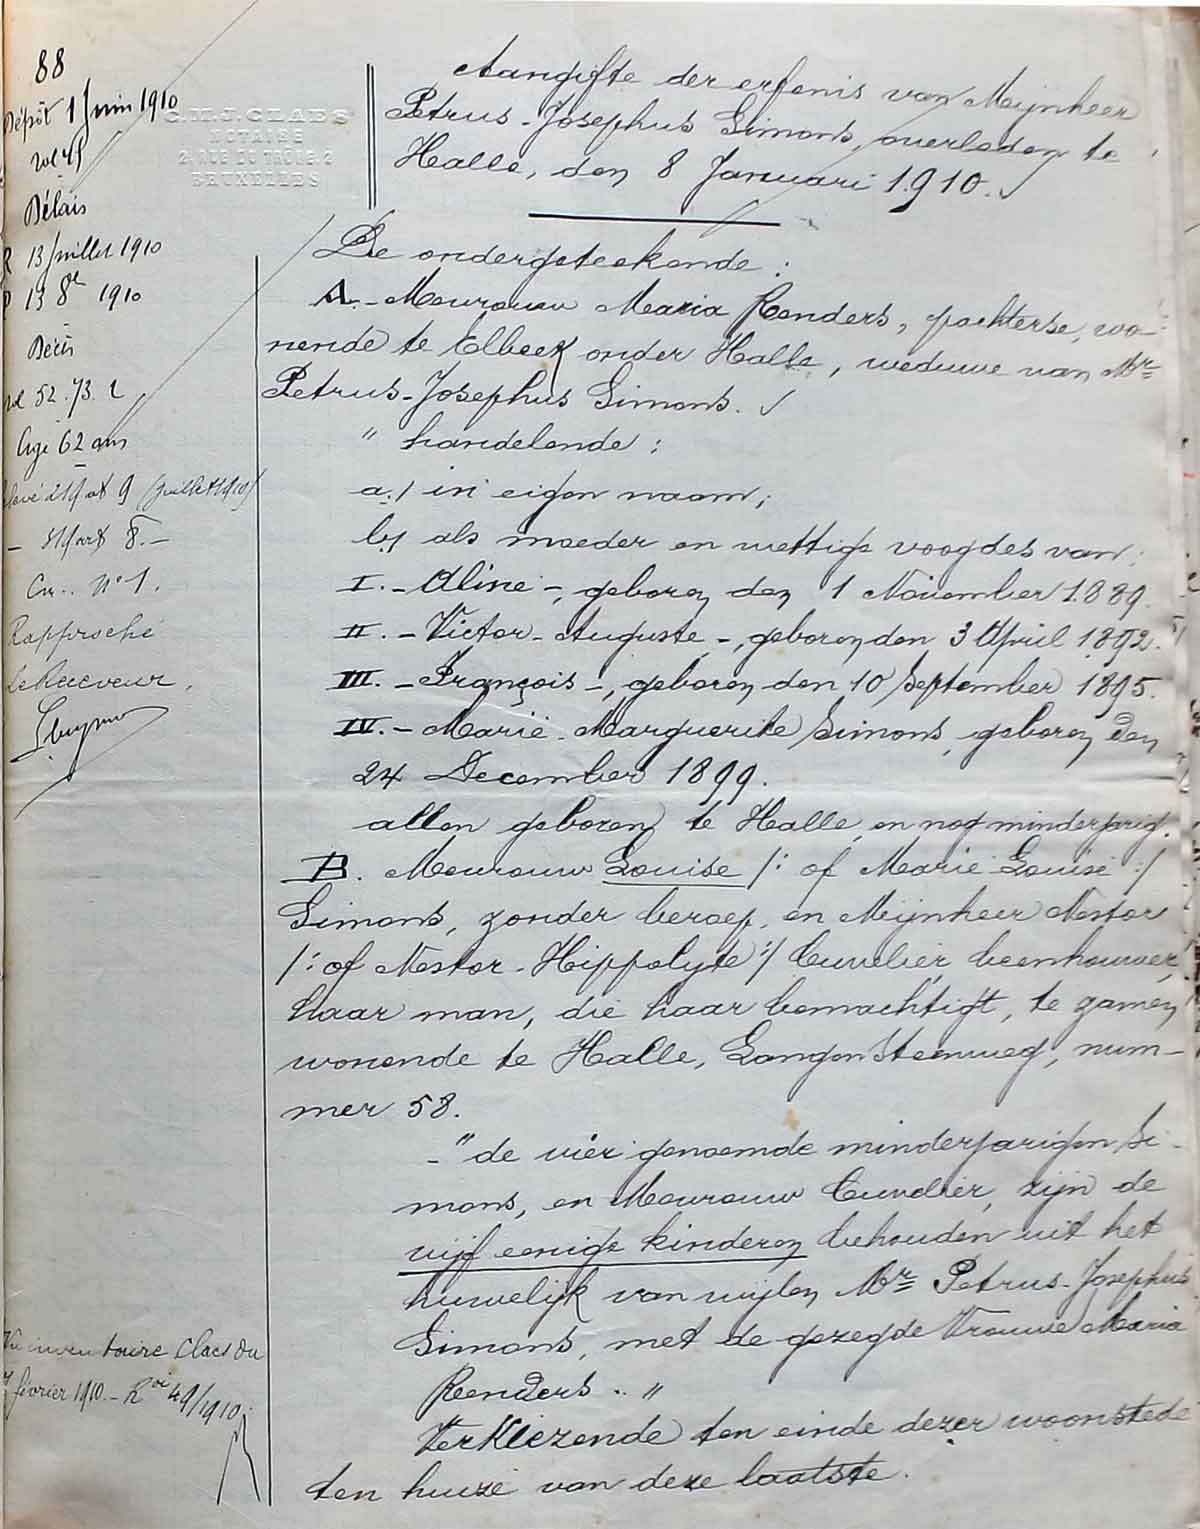 88
Dépôt 1 Juin 1910
vol 45
Délais
13 Juillet 1910
13 8re 1910
Décès
vol 52.73.
Agé 62 ans
art 9 Juillet 1910
8.-
n° 1.
Le Receveur,
C.M.J. CLAES
NOTAIRE
2, RUE DU TRÔNE, 2
BRUXELLES
Aangifte der erfenis van Mijnheer
Petrus-Josephus Simons, overleden te
Halle, den 8 Januari 1910.
De ondergeteekende:
A.- Mevrouw Maria Renders, pachterse, wo-
nende te Elbeek onder Halle, weduwe van Mr
Petrus-Josephus Simons.
" handelende:
a/ in eigen naam;
b/ als moeder en wettige voogdes van:
I.- Aline -, geboren den 1 November 1889.
II.- Victor-Auguste -, geboren den 3 April 1892.
III.- François -, geboren den 10 September 1895.
IV.- Marie-Marguerite Simons, geboren den
24 December 1899.
allen geboren te Halle en nog minderjarig.
B. Mevrouw Louise /: of Marie Louise :/
Simons, zonder beroep, en Mijnheer Nestor
/: of Nestor-Hippolyte :/ Cuvelier, beenhouwer,
haar man, die haar bemachtigt, te zamen
wonende te Halle, Langen Steenweg, num-
mer 58.
-" de vier genoemde minderjarigen Si-
mons, en Mevrouw Cuvelier, zijn de
vijf eenige kinderen behouden uit het
huwelijk van wijlen Mr Petrus-Josephus
Simons, met de gezegde Vrouwe Maria
Renders.. "
Verkiezende ten einde dezer woonstede
ten huize van deze laatste.
Vu inventaire Claes du
février 1910.- 49/1910.